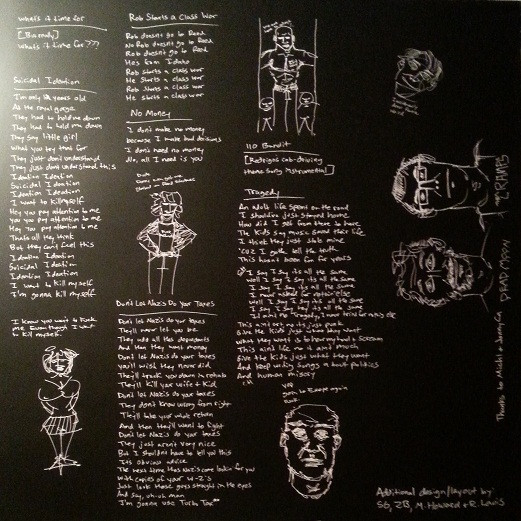 what's it time for
[Burnedy]
what's it time for ???
Suicidal Ideation
I'm only 12 years old
As the
They had to hold me down
They had to hold me down
They say little girl
What you try that for
They just don't understand
They just don't understand this
Ideation Ideation
Suicidal Ideation
Ideation Ideation
I want to kill myself
Hey you pay attention to me
You you pay attention to me
Hey you pay attention to me
Thats all they think
But they can't feel this
Ideation Ideation
Suicidal Ideation
Ideation Ideation
I want to kill myself
I'm gonna kill myself
I know you want to fuck
me. Even though I want
to kill myself.
Rob Starts a Class War
Rob doesn't go to Reed
No Rob doesn't go to Reed
Rob doesn't go to Reed
He's from Idaho
Rob starts a class war
He starts a class war
Rob starts a class war
He starts a class war
No Money
I don't make no money
because I make bad decisions
I don't need no money
No, all I need is you
Dont Let Nazis Do Your Taxes
Dont let Nazis do your taxes
They'll never let you be
They add all the dependants
And then they want money
Dont let Nazis do your taxes
You'll wish they never did
They'll track you down in rehab
They'll kill your wife + kid
Dont let Nazis do your taxes
They don't know wrong from right
They'll take your whole return
And then they'll want to fight
Dont let Nazis do your taxes
They just aren't very nice
But I shouldn't have to tell you this
Its obvious advice
The next time Has Nazis come lookin for you
with copies of your W-2's
Just look those guys straight in the eyes
And say, uh-uh man
I'm gonna use Turbo Tax
110 Bandit
[Redeigns cab-driving
theme song instrumental]
Tragedy
An adult life spent on the road
I shoulda just stayed home
How did I get from there to here
The kids say music saved their life
I think they just stole mine
'Coz I gotta tell the truth
This hasn't been fun for years
I say I say its all the same
Well I say I say its all the same
I say I say its all the same
Well I say I say its all the same
This aint art no its just punk
Give the kids just what they want
What they want is to hear my head a scream
This aint life no it aint much
Give the kids just what they want
And keep writing songs about politics
And human misery
yes
goto Europe again
GRIMES
DEAD MOON
Thanks to Michel + Jenny Ca
Additional design/layout by:
SG, ZB, M. Howard + R. Lewis